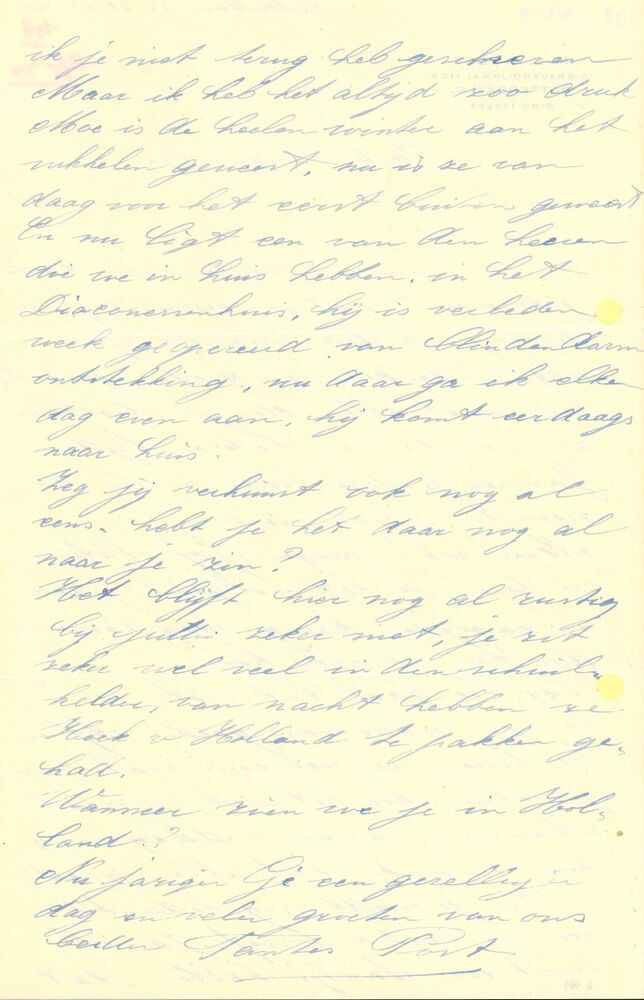 ik je niet terug heb geschreven
Maar ik heb het altijd zoo druk
Moe is de heelen winter aan het
sukkelen geweest, nu is ze van
daag voor het eerst buiten geweest
En nu ligt een van den heeren
die we in huis hebben. in het
Diaconessenhuis, hij is verleden
week geopereerd van blinden darm
ontstekking, nu daar ga ik elken
dag even aan, hij komt eerdaags
naar huis.
Zeg jij verhuist ook nog al
eens. hebt je het daar nog al
naar je zin?
Het blijft hier nog al rustig
bij jullie zeker niet, je zit
zeker wel veel in den schuil-
kelder, van nacht hebben ze
Hoek v Holland te pakken ge-
had.
Wanneer zien we je in Hol-
land.?
Nu jarige een gezellige
dag en vele groeten van ons
beiden Tantes Post